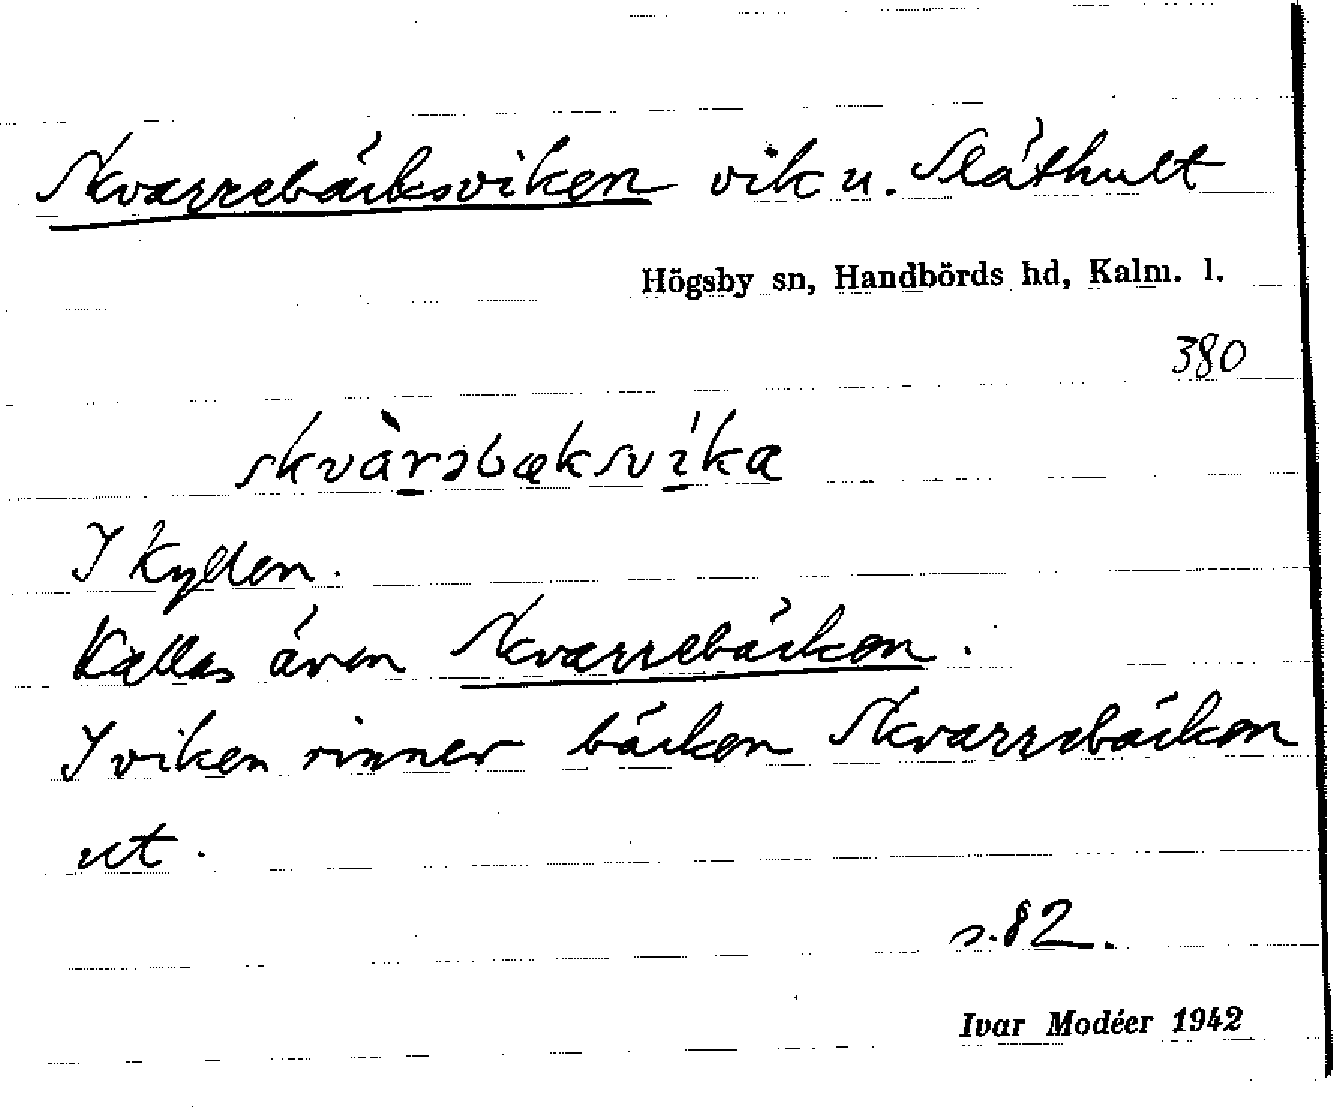 Skvarrebäcksviken vik u. Slåthult
Högsby sn, Handbörds hd, Kalm. l.
380
skvàrəbæksvíka
I Kyllen.
Kallas även Skvarrebäcken.
I viken rinner bäcken Skvarrebäcken
ut.
s. 82.
Ivar Modéer 1942